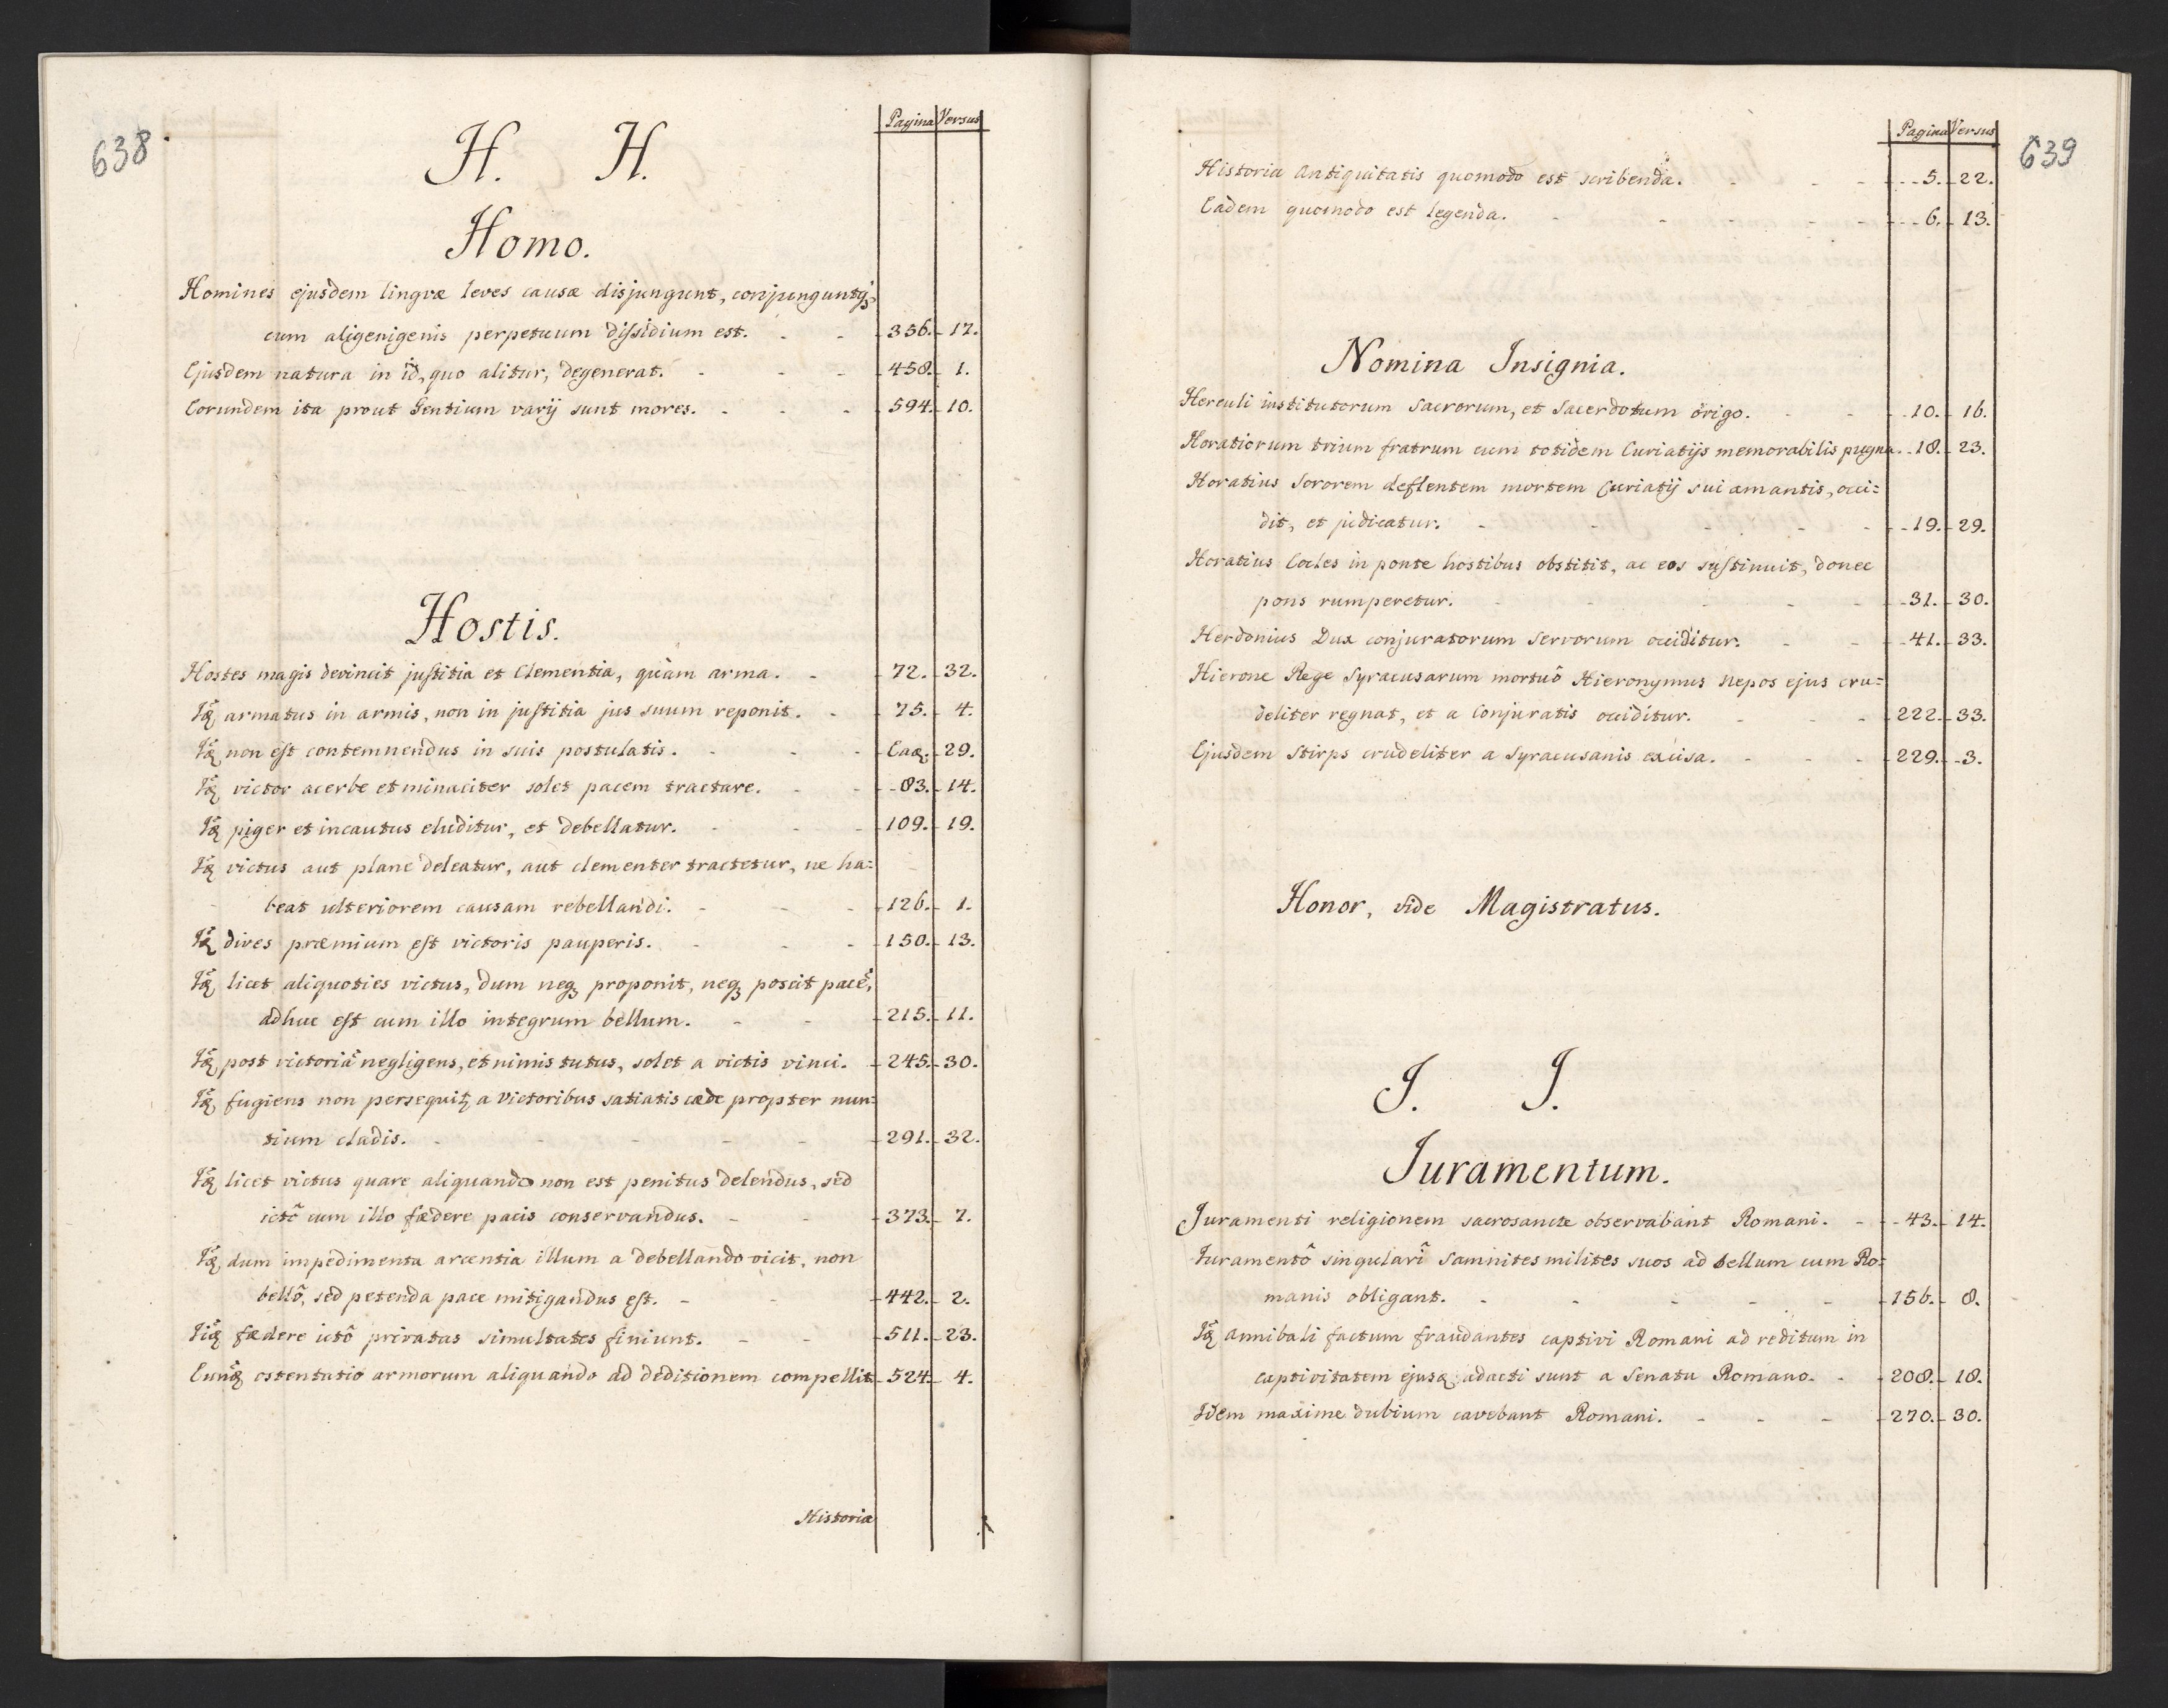 638
Pagina Versus
H. H.
Homo.
Homines ejusdem lingvæ leves causæ disjungunt, conjunguntq̃,
cum aligenigenis perpetuum dissidium est. - - 356. 17.
Ejusdem natura in id, quo alitur, degenerat. - - - 458. 1.
Eorundem ita prout Gentium varij sunt mores. - - - 594. 10.
Hostis.
Hostes magis devincit justitia et Clementia, quàm arma. - 72. 32.
armatus in armis, non in justitia jus suum reponit. - 75. 4.
non est contemnendus in suis postulatis. - - - 29.
victor acerbe et minaciter solet pacem tractare. - - 83. 14.
piger et incautus eluditur, et debellatur. - - - 109. 19.
victus aut plane deleatur, aut clementer tractetur, ne ha=
beat ulteriorem causam rebellandi. - - - 126. 1.
dives præmium est victoris pauperis. - - - 150. 13.
licet aliquoties victus, dum neq̃ proponit, neq̃ poscit pacẽ,
adhuc est cum illo integrum bellum. - - 215. 11.
post victoriã negligens, et nimis tutus, solet a victis vinci. - 245. 30.
fugiens non persequit a Victoribus satiatis cæde propter nun=
tium cladis. - - - - - 291. 32.
licet victus quare aliquando non est penitus delendus, sed
ictô cum illo fædere pacis conservandus. - - 373. 7.
dum impedimenta arcentia illum a debellando vicit, non
bellô, sed petenda pace mitigandus est. - - 442. 2.
fædere ictô privatas simultates finiunt. - - 511. 23.
ostentatio armorum aliquando ad deditionem compellit. 524. 4.
Historia
639
Pagina Versus
Historia Antiquitatis quomodo est scribenda. - - - 5. 22.
Eadem quomodo est legenda. - - - - - 6. 13.
Nomina Insignia.
Herculi institutorum Sacrorum, et Sacerdotum origo. - - 10. 16.
Horatiorum trium fratrum cum totidem Curiatijs memorabilis pugna. 18. 23.
Horatius Sororem deflentem mortem Curiatij sui amantis, occi=
dit, et judicatur. - - - - - 19. 29.
Horatius Cocles in ponte hostibus obstitit, ac eos sustinuit, donec
pons rumperetur. - - - - - 31. 30.
Herdonius Dux conjuratorum Servorum occiditur. - - 41. 33.
Hierone Rege Syracusarum mortuô Hieronymus Nepos ejus cru=
deliter regnat, et a Conjuratis occiditur. - - - 222. 33.
Ejusdem Stirps crudeliter a Syracusanis excisa. - - - 229. 3.
Honor, vide Magistratus.
J. J.
Juramentum.
Juramenti religionem sacrosancte observabant Romani. - 43. 14.
Juramentô singulari Samnites milites suos ad bellum cum Ro=
manis obligant. - - - - - 156. 8.
Annibali factum fraudantes captivi Romani ad reditum in
captivitatem adacti sunt a Senatu Romano. - 208. 18.
Idem maxime dubium cavebant Romani. - - - 270. 30.